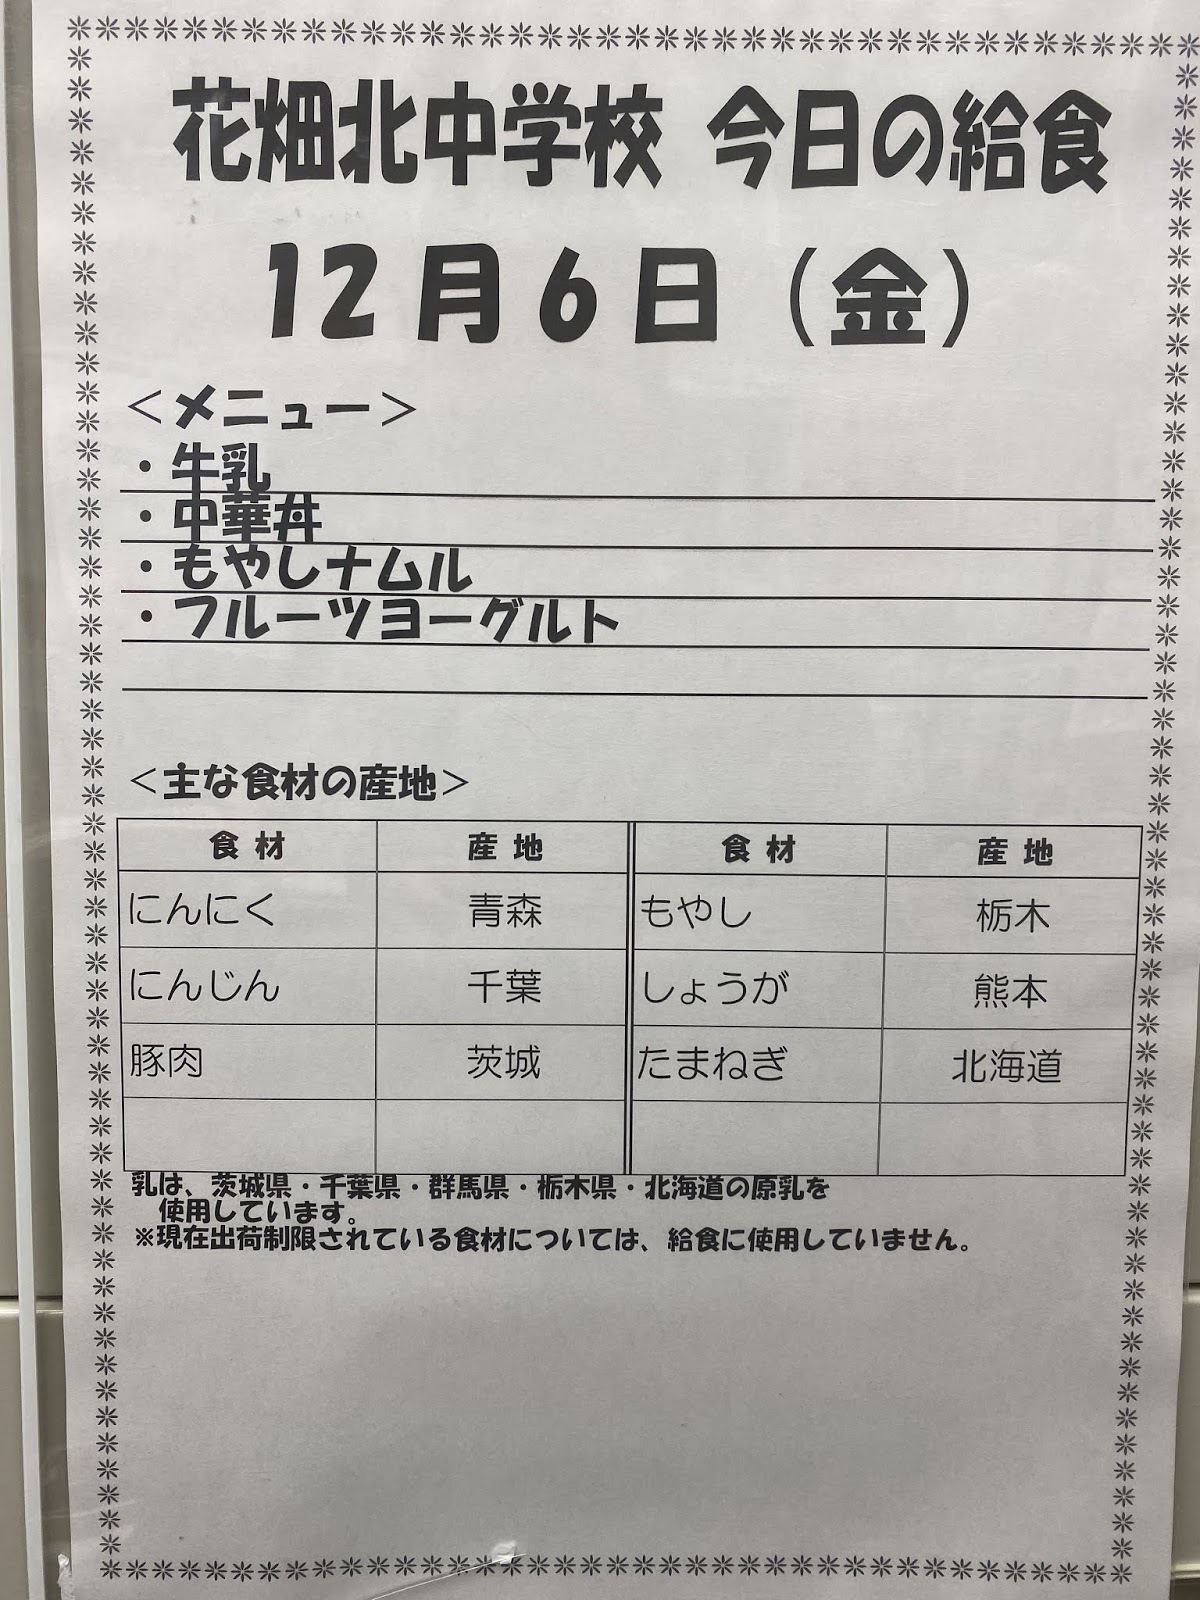 花畑北中学校 今日の給食
12月6日（金）
＜メニュー＞
・牛乳
・中華丼
・もやしナムル
・フルーツヨーグルト
＜主な食材の産地＞
食材 産地 食材 産地
にんにく 青森 もやし 栃木
にんじん 千葉 しょうが 熊本
豚肉 茨城 たまねぎ 北海道
乳は、茨城県・千葉県・群馬県・栃木県・北海道の原乳を
使用しています。
※現在出荷制限されている食材については、給食に使用していません。